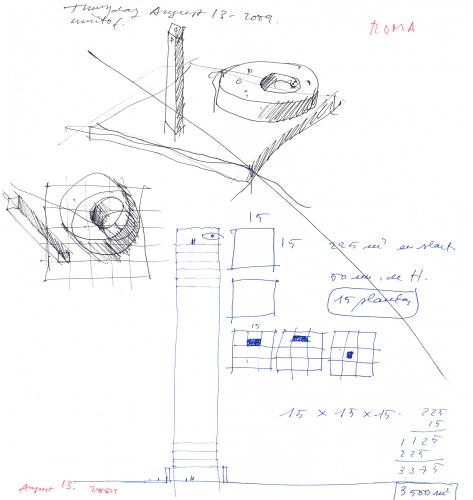 Thursday August 13 - 2009.
ROMA
15
15
225 m² en start
50 m. de H.
15 plantas
15
15 × 15 × 15.
225
15
1125
225
3375
3500 m²
August 13. 2009